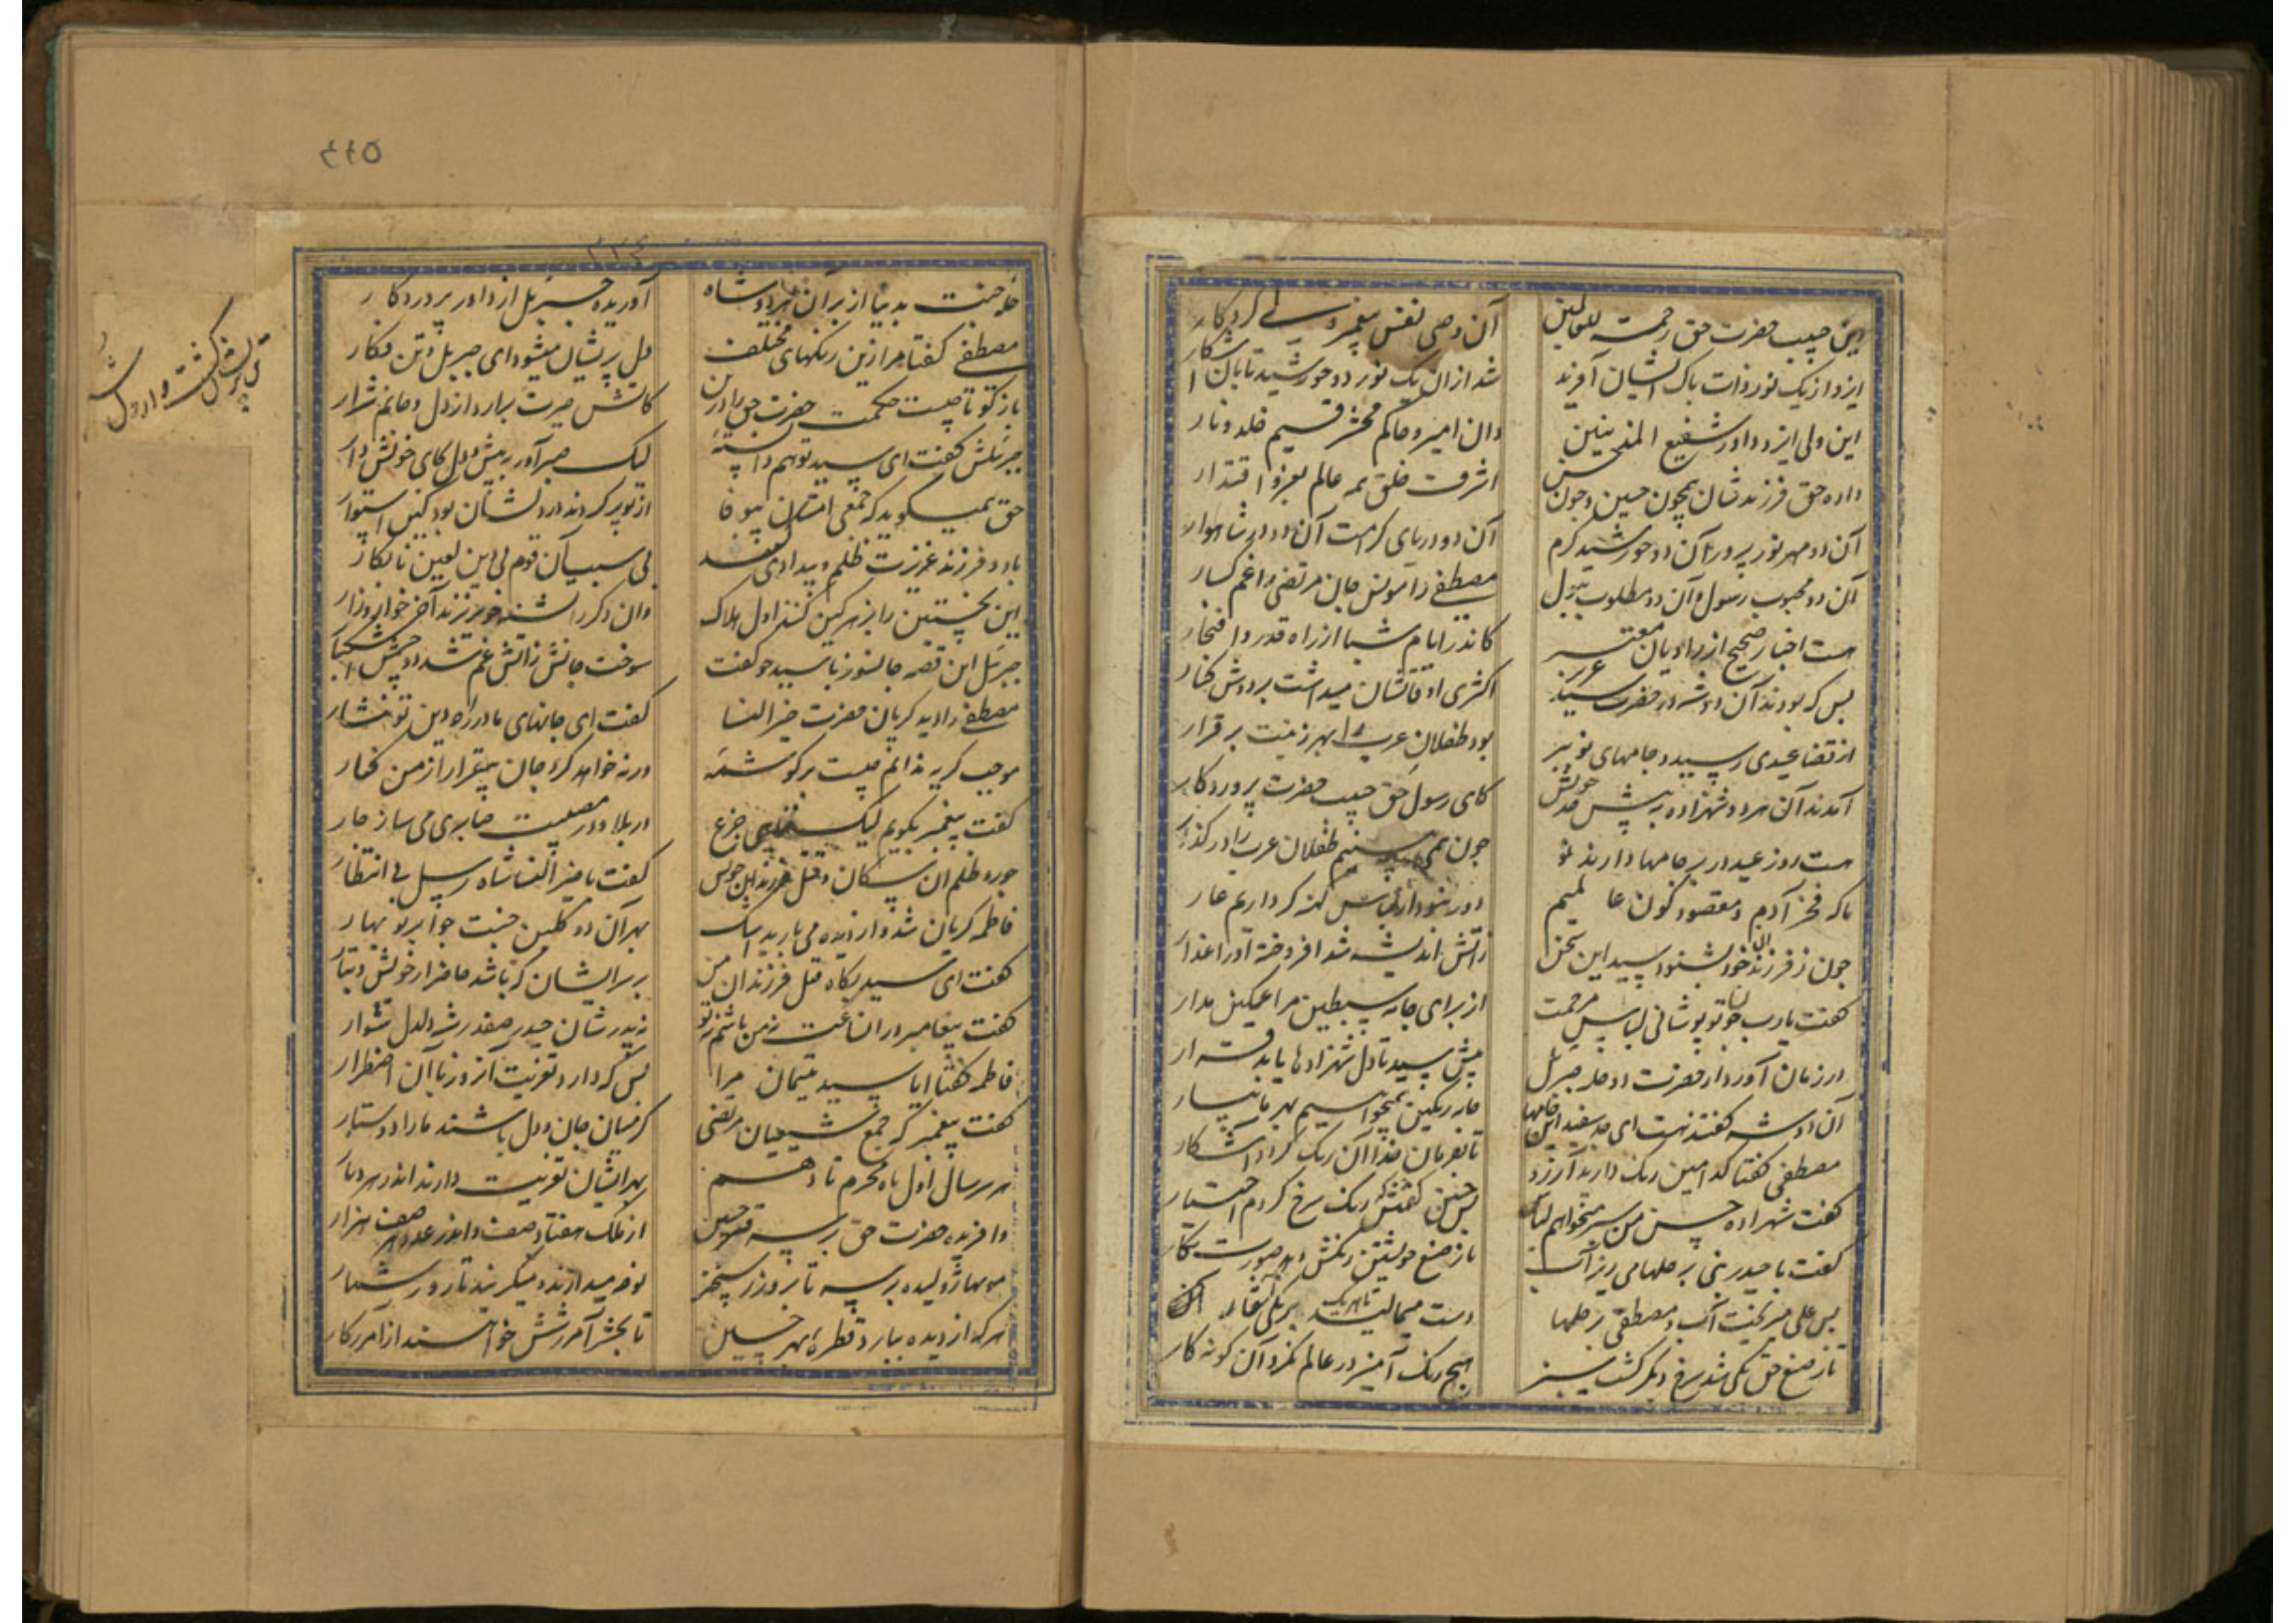 این حبیب حضرت حق رحمة للعالمین آن وصی نفس پیغمبر ولی کردکار
ایزد از یک نور ذات پاک ایشان آفرید شد ازان یک نور دو خورشید تابان آشکار
این ولی ایزد داور شفیع المذنبین وان امیر و حاکم محشر قسیم خلد و نار
داده حق فرزندشان همچون حسین و چون حسن اشرف خلق همه عالم بعز و اقتدار
آن دو مهر نور پرور آن دو خورشید کرم آن دو دریای کرامت آن دو در شاهوار
آن دو محبوب رسول و آن دو مطلوب بتول مصطفی را مونس جان مرتضی را غمکسار
هست اخبار صحیح از راویان معتبر کاندر ایام شبا از راه قدر و افتخار
بس که بودند آن دو شه در حضرت سید عزیز اکثری اوقاتشان میداشت بر دوش و کنار
از قضا عیدی رسید و جامهای نو ببر بود طفلان عرب را بهر زینت برقرار
آمدند آن هر دو شهزاده به پیش جد خویش کای رسول حق حبیب حضرت پروردکار
هست روز عید و در بر جامها دارند نو چون همی بینیم طفلان عرب را در کذار
ما که فخر آدم و مقصود کون عالمیم در بر خود از لباس کهنه کر داریم عار
چون ز فرزندان خود بشنود سید این سخن ز آتش اندیشه شد افروخته آن را عذار
کفت یارب خود تو پوشانی لباس مرحمت از برای جامه سبطین مرا غمکین مدار
در زمان آورد از حضرت دو حله جبرئیل پیش سید تا دل شهزادها یابد قرار
آن دو شه کفتند نیست ای جد سفید این جامها جامه رنکین همیخواهیم بهر ما بیار
مصطفی کفتا کدامین رنک دارید آرزو تا بفرمان خدا آن رنک کردد آشکار
کفت شهزاده حسن من سبز میخواهم لباس پس حسین کفتش که رنک سرخ کردم اختیار
کفت با حیدر نبی بر حلها می ریز آب تا ز صنع خویشتن رنکش دهد صورت نکار
پس علی میریخت آب و مصطفی بر حلها دست میمالید تا هر یک
تا ز صنع حق یکی شد سرخ و دیکر کشت سبز هیچ رنک آمیز در عالم نکرد آن کونه کار
٤٤٥
٣٣٤
حله جنت بدنیا از برای آن هر دو شاه آوریده جبرئیل از داور پروردکار
مصطفی کفتا مرا زین رنکهای مختلف دل پریشان میشود ای جبرئیل و تن فکار
باز کو تا چیست حکمت حضرت حق را درین کاتش حیرت برآرد از دل و جانم شرار
جبرئیلش کفت ای سید تو هم دانسته لیک صبر آور به پیش و دل بجای خویش دار
حق همیکوید که جمعی امتان بیوفا از تو برکردند و در دلشان بود کین استوار
با دو فرزند عزیزت ظلم و بیدادی کنند بی سبب آن قوم بی دین لعین نابکار
این نخستین را بزهر کین کنند اول هلاک وان دکر را تشنه خون ریزند آخر خوار و زار
جبرئیل این قصه جانسوز با سید چو کفت سوخت جانش ز آتش غم شد دو چشمش اشکبار
مصطفی را دید کریان حضرت خیر النسا کفت ای جانهای ما در راه دین تو نثار
موجب کریه ندانم چیست برکو شمه ورنه خواهد کرد جان بیقرار از من کنار
کفت پیغمبر بکویم لیک جزع در بلا و در مصیبت صابری می ساز کار
جور و ظلم آن سکان و قتل فرزند این چو بس کفت با خیر النسا شاه رسل بی انتظار
فاطمه کریان شد و از دیده می بارید اشک بهر آن دو کلبن جنت چو ابر نوبهار
کفت ای سید بکاه قتل فرزندان من بر سر ایشان که باشد حاضر از خویش و تبار
کفت پیغامبر دران ساعت نه من باشم نه تو نه پدرشان حیدر صفدر شه دلدل سوار
فاطمه کفتا ایا سید یتیمان مرا پس که دارد تعزیت آنروز با آن اضطرار
کفت پیغمبر که جمع شیعیان مرتضی کز میان جان و دل باشند ما را دوستدار
هر سر سال اول ماه محرم تا دهم بهر ایشان تعزیت دارند اندر هر دیار
وافریده حضرت حق بر سر قبر حسین از ملک هفتاد صف واندر عدد هر صف هزار
مویها ژولیده بر سر تا بروز رستخیز نوحه میدارند و میکریند تا روز شمار
هر که از دیده ببارد قطره بهر حسین تا بحشر آمرزشش خواهند از آمرزکار